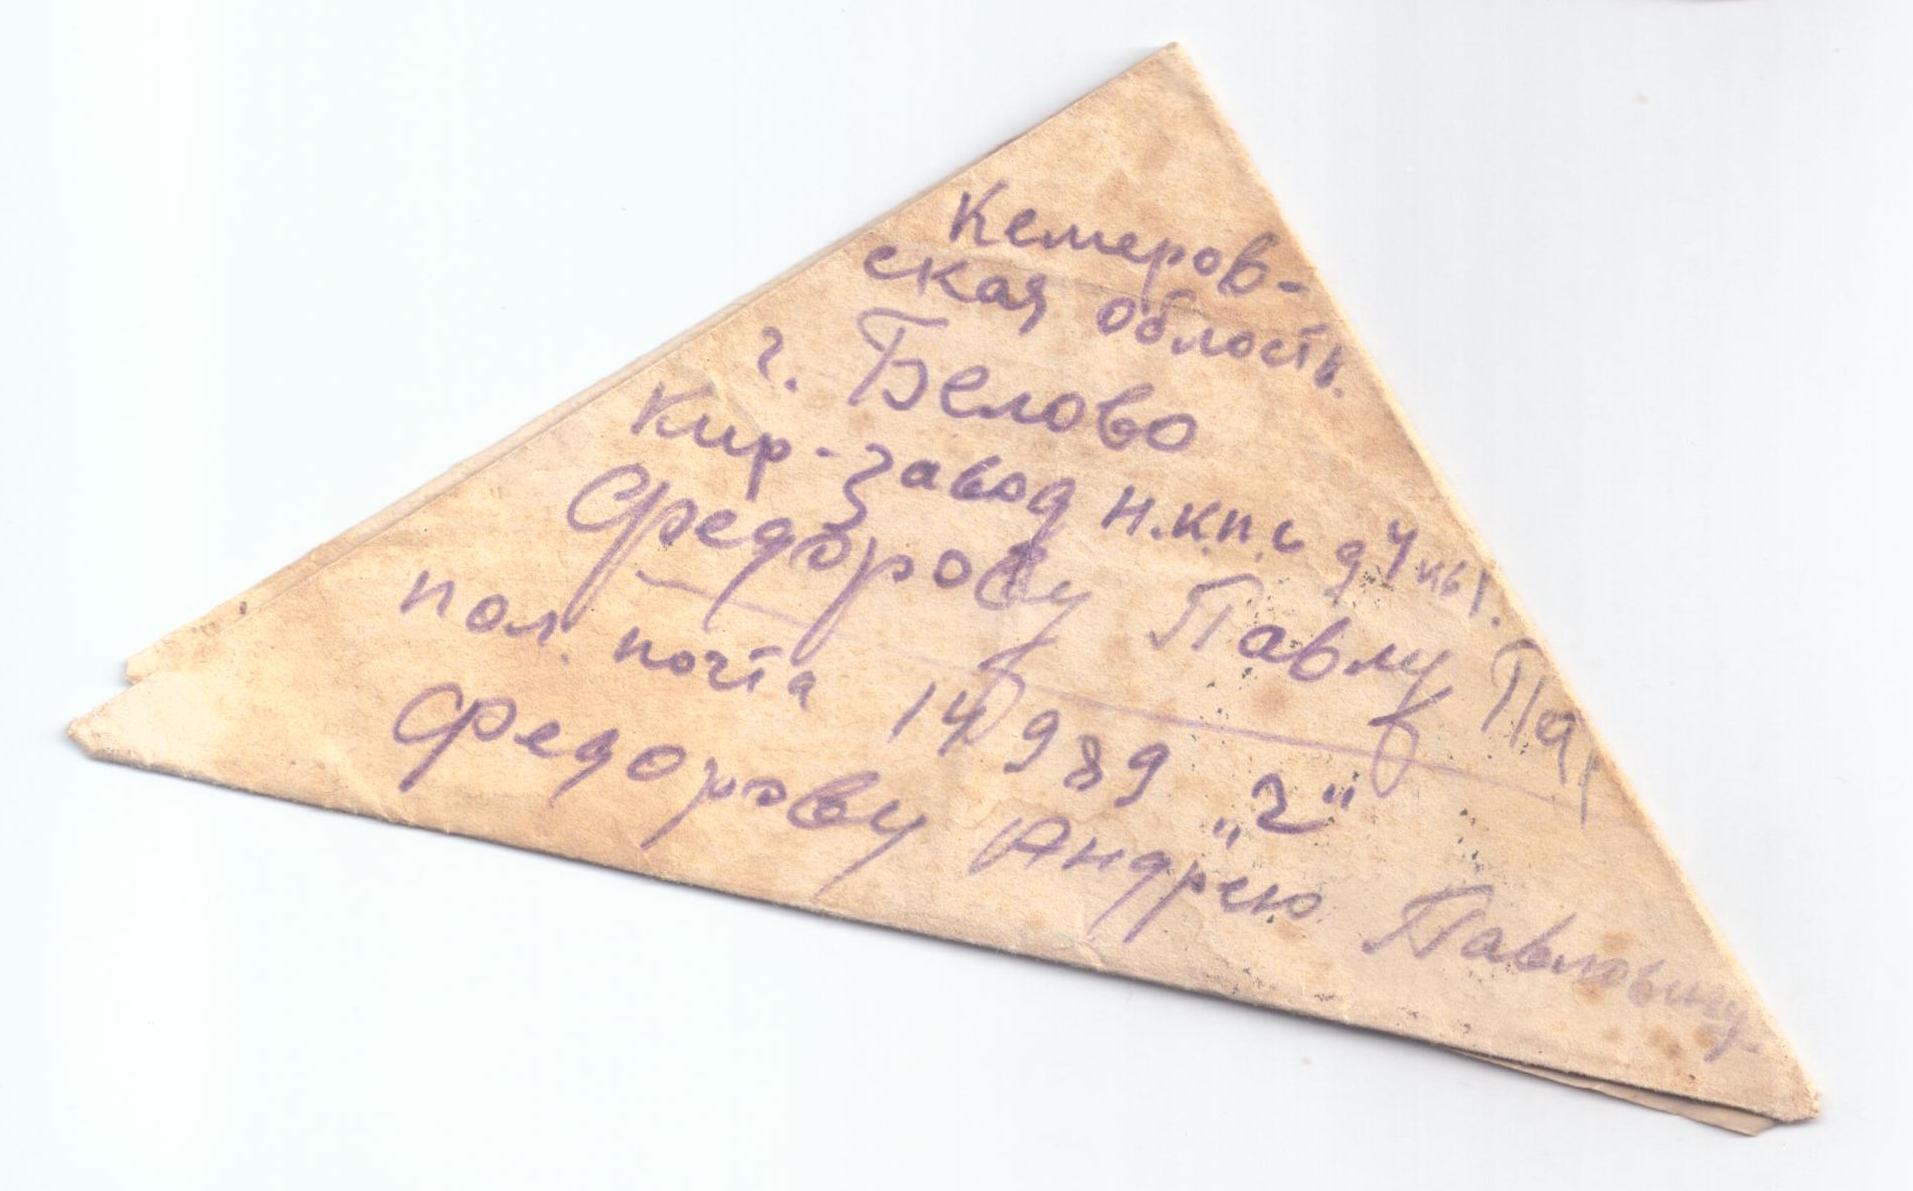 Кемеров-
ская облость.
г. Белово
Кир-завод Н.К.П.С д 4 кв 1.
Федорову Павлу Пет
пол. почта 14989 „г“
Федорову Андрею Павловичу.